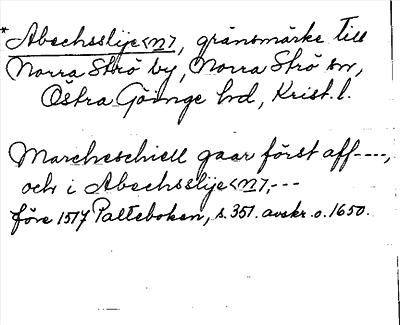 *Abechsslije<n>, gränsmärke till
Norra Strö by, Norra Strö sn,
Östra Göinge hd, Krist. l.
Marcheschiell gaar först aff----,
och i Abechsslije<n>,---
före 1517 Palteboken, s. 351. avskr. o. 1650.